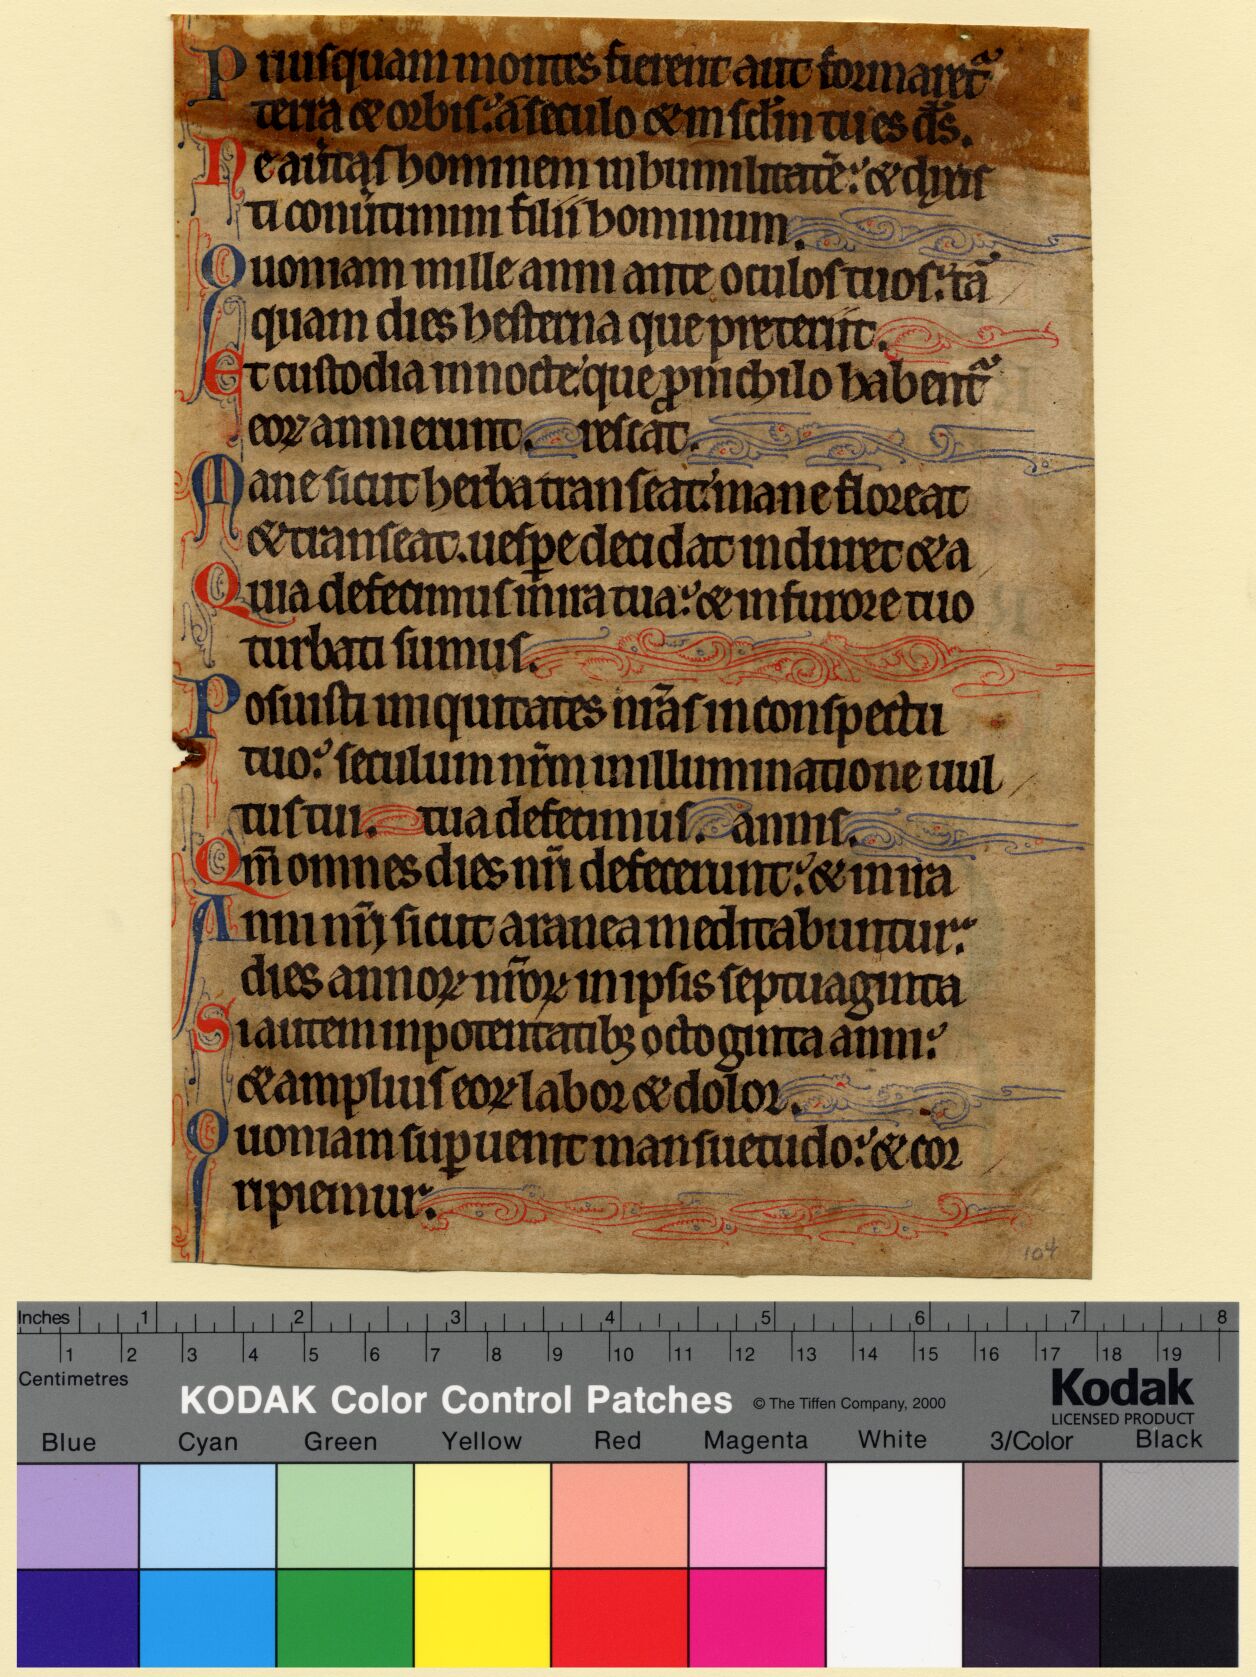 Priusquam montes fierent aut formaret᷑
terra & orbis: a seculo & in sclm̄ tu es d̄s.
Ne au̾tas hominem in humilitatē: & dixis
ti conu̾timini filii hominum.
Quoniam mille anni ante oculos tuos: tā
quam dies hesterna que preteriit.
Et custodia in nocte: que ꝓ nichilo habent᷑
eoꝝ anni erunt. rescat.
Mane sicut herba transeat: mane floreat
& transeat. uesꝑe decidat induret & a
Quia defecimus in ira tua: & in furore tuo
turbati sumus.
Posuisti iniquitates nr̄as in conspectu
tuo: seculum nr̄m in illuminatione uul
tus tui. tua defecimus. annis.
Qm̄ omnes dies nr̄i defecerunt: & in ira
Anni nr̄i sicut aranea meditabuntur:
dies annoꝝ nr̄oꝝ in ipsis septuaginta
Si autem in potentatibꝫ octoginta anni:
& amplius eoꝝ labor & dolor.
Quoniam suꝑuenit mansuetudo: & cor
ripiemur.
104
Inches 1 2 3 4 5 6 7 8
1 2 3 4 5 6 7 8 9 10 11 12 13 14 15 16 17 18 19
Centimetres
KODAK Color Control Patches © The Tiffen Company, 2000
Kodak
LICENSED PRODUCT
Blue Cyan Green Yellow Red Magenta White 3/Color Black